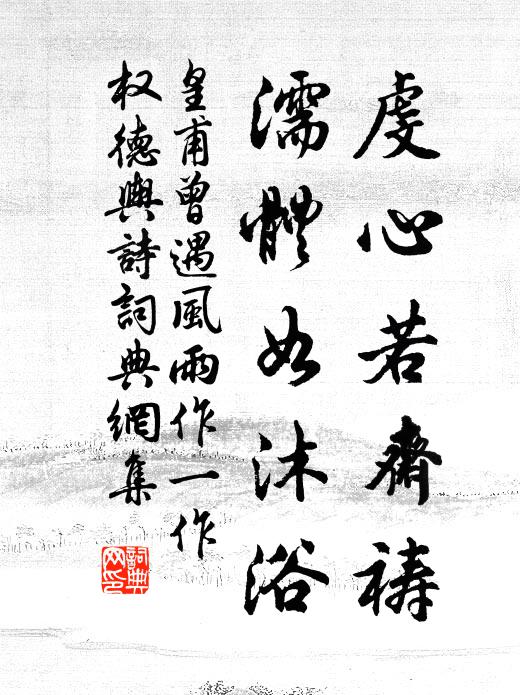 虔心若齋禱
濡體如沐浴
皇甫曾遇風雨作一作
权德輿詩詞典網集
詞典網印